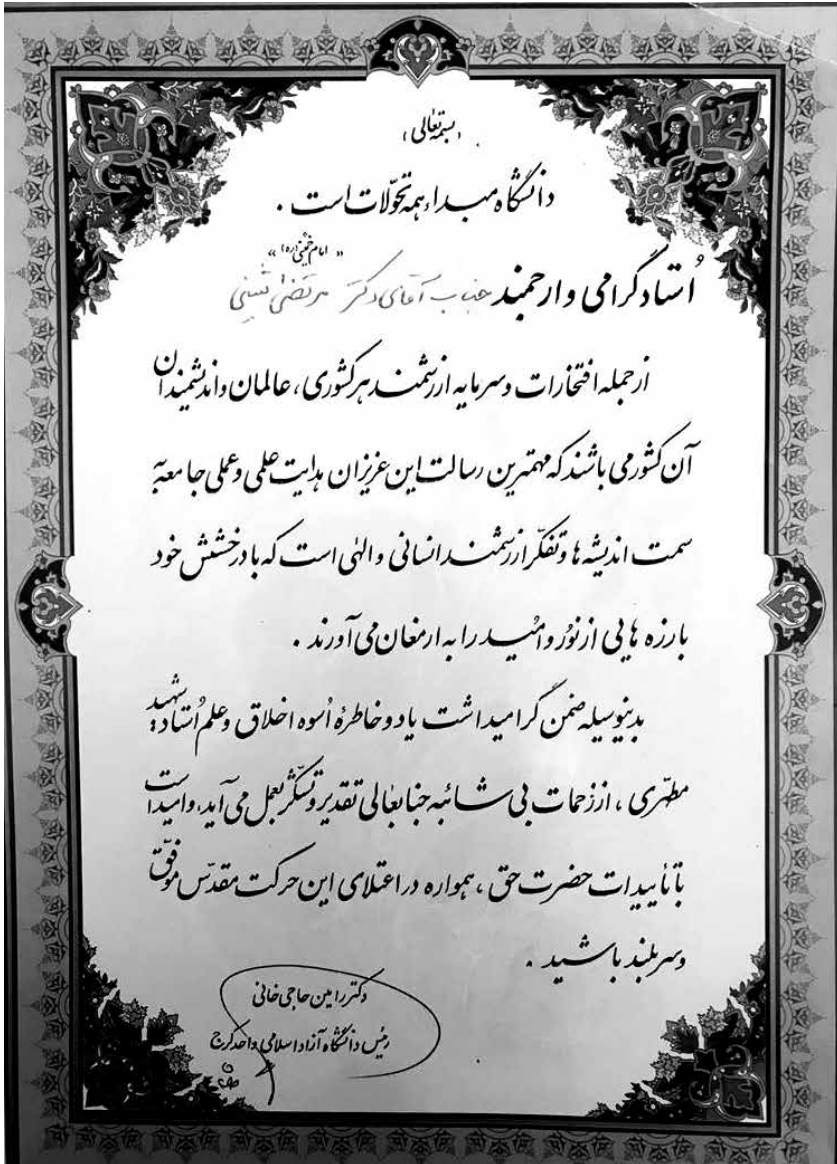 بسمه تعالی
دانشگاه مبداء همه تحولات است .
« امام خمینی (ره) »
اُستاد گرامی و ارجمند جناب آقای دکتر مرتضی
از جمله افتخارات و سرمایه ارزشمند هر کشوری، عالمان و اندیشمندان
آن کشور می باشند که مهمترین رسالت این عزیزان هدایت علمی و عملی جامعه به
سمت اندیشه ها و تفکّر ارزشمند انسانی و الهی است که با درخشش خود
بارزه هایی از نُور و اُمید را به ارمغان می آورند .
بدینوسیله ضمن گرامیداشت یاد و خاطرهٔ اُسوه اخلاق و علم اُستاد شهید
مطهّری ، از زحمات بی شائبه جنابعالی تقدیر و تشکّر بعمل می آید، و امید است
با تأییدات حضرت حق ، همواره در اعتلای این حرکت مقدّس موفّق
و سربلند باشید .
دکتر رامین حاجی خانی
رئیس دانشگاه آزاد اسلامی واحد کرج